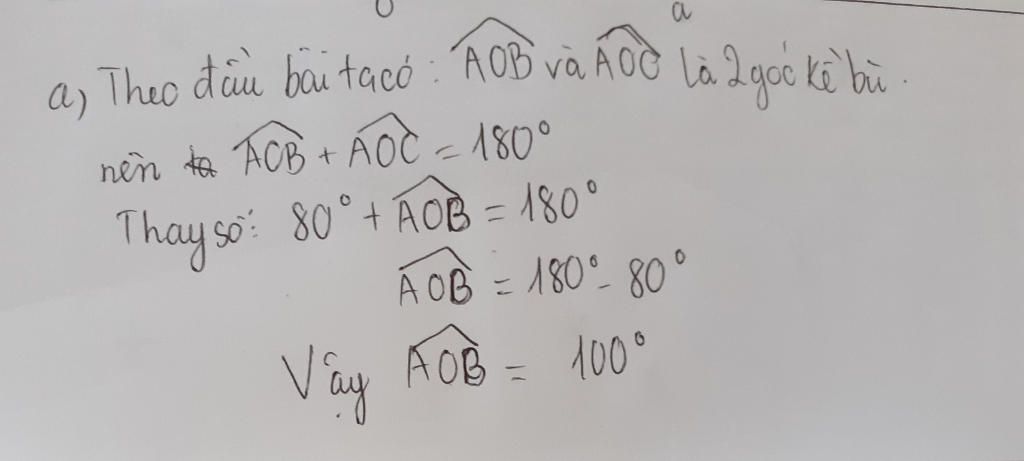 a) Theo đầu bài ta có: $\widehat{AOB}$ và $\widehat{AOC}$ là 2 góc kề bù.
nên $\widehat{AOB}$ + $\widehat{AOC}$ = 180°
Thay số: 80° + $\widehat{AOB}$ = 180°
$\widehat{AOB}$ = 180° - 80°
Vậy $\widehat{AOB}$ = 100°